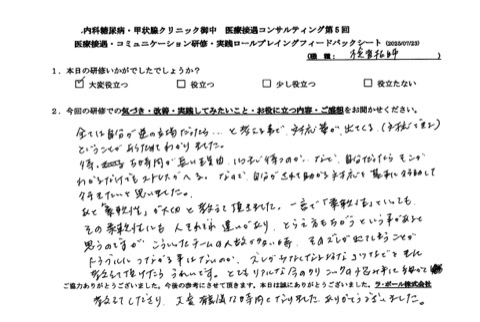 内科糖尿病・甲状腺クリニック御中 医療接遇コンサルティング第5回
医療接遇・コミュニケーション研修・実践ロールプレイングフィードバックシート (2025/07/23)
(職種: 検査技師)
1.本日の研修いかがでしたでしょうか?
大変役立つ 役立つ 少し役立つ 役立たない
2.今回の研修での気づき・改善・実践してみたいこと・お役に立つ内容・ご感想をお聞かせください。
全ては自分が逆の立場だったら…と考える事で、対応策が出てくる(対応できる)
ということがあらためてわかりました。
待ち時間が長い理由、いつまで待つのか、など、自分だったらそこが
わかるだけでもストレスがへる。なので、自分がされて助かる対応を基本に行動して
行きたいと思いました。
あと「柔軟性」が大切と教えて頂きました。一言で「柔軟性」といっても、
その柔軟性にも人それぞれ違いがあり、とらえ方もちがうという事があると
思うのですが、こういったチームの人数が少ない時、そのズレが出てしまうことが
トラブルにつながる事はないのか、ズレが
教えて頂けたらうれしいです。とてもリアルな
ご協力ありがとうございました。今後の参考にさせて頂きます。本日は誠にありがとうございました。ラ・ポール株式会社
教えてくださり、大変有意義な時間となりました。ありがとうございました。